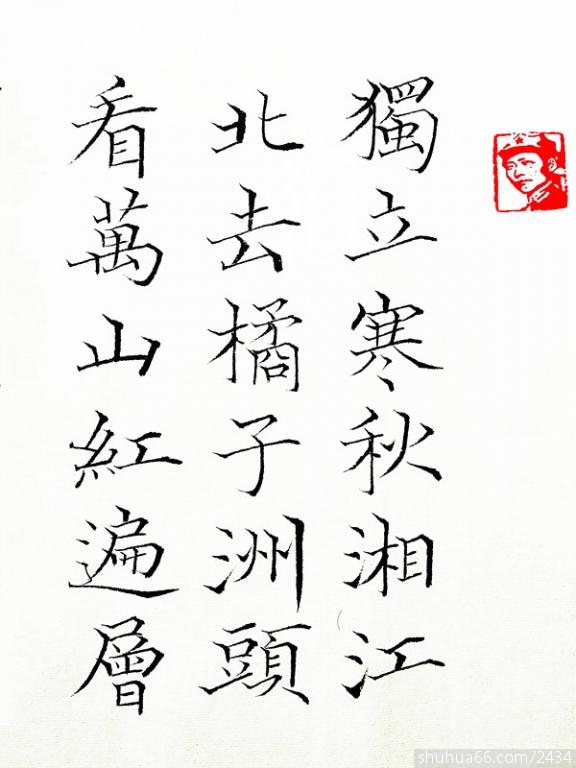 獨立寒秋湘江
北去橘子洲頭
看萬山紅遍層
shuhua66.com/2434